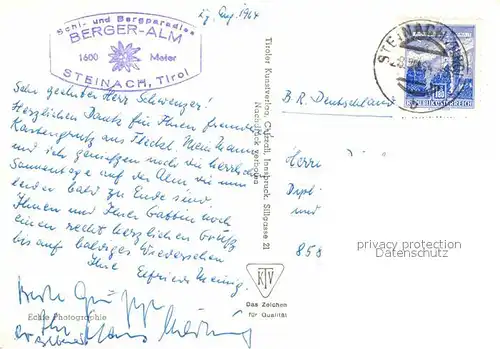 27. Aug. 1964
Schi- und Bergparadies
BERGER-ALM
1600 Meter
STEINACH, Tirol
Sehr geehrter Herr Schwenger!
Herzlichen Dank für Ihren freundl.
Kartengruß aus Mein Mann
und ich genießen noch die herrlichen
Sonnentage auf der Alm die nun
leider bald zu Ende sind.
Ihnen und Ihrer Gattin noch
einen recht herzlichen Gruß
bis auf baldiges Wiedersehen
Ihre Elfriede
Beste Grüße
Ihr
Hans
Echte Photographie
Tiroler Kunstverlag, Chizzali, Innsbruck, Sillgasse 21
Nachdruck verboten
KTV
Das Zeichen
für Qualität
STEINACH
REPUBLIK ÖSTERREICH
B.R. Deutschland
Herrn
Dipl
und
858
privacy protection
Datenschutz